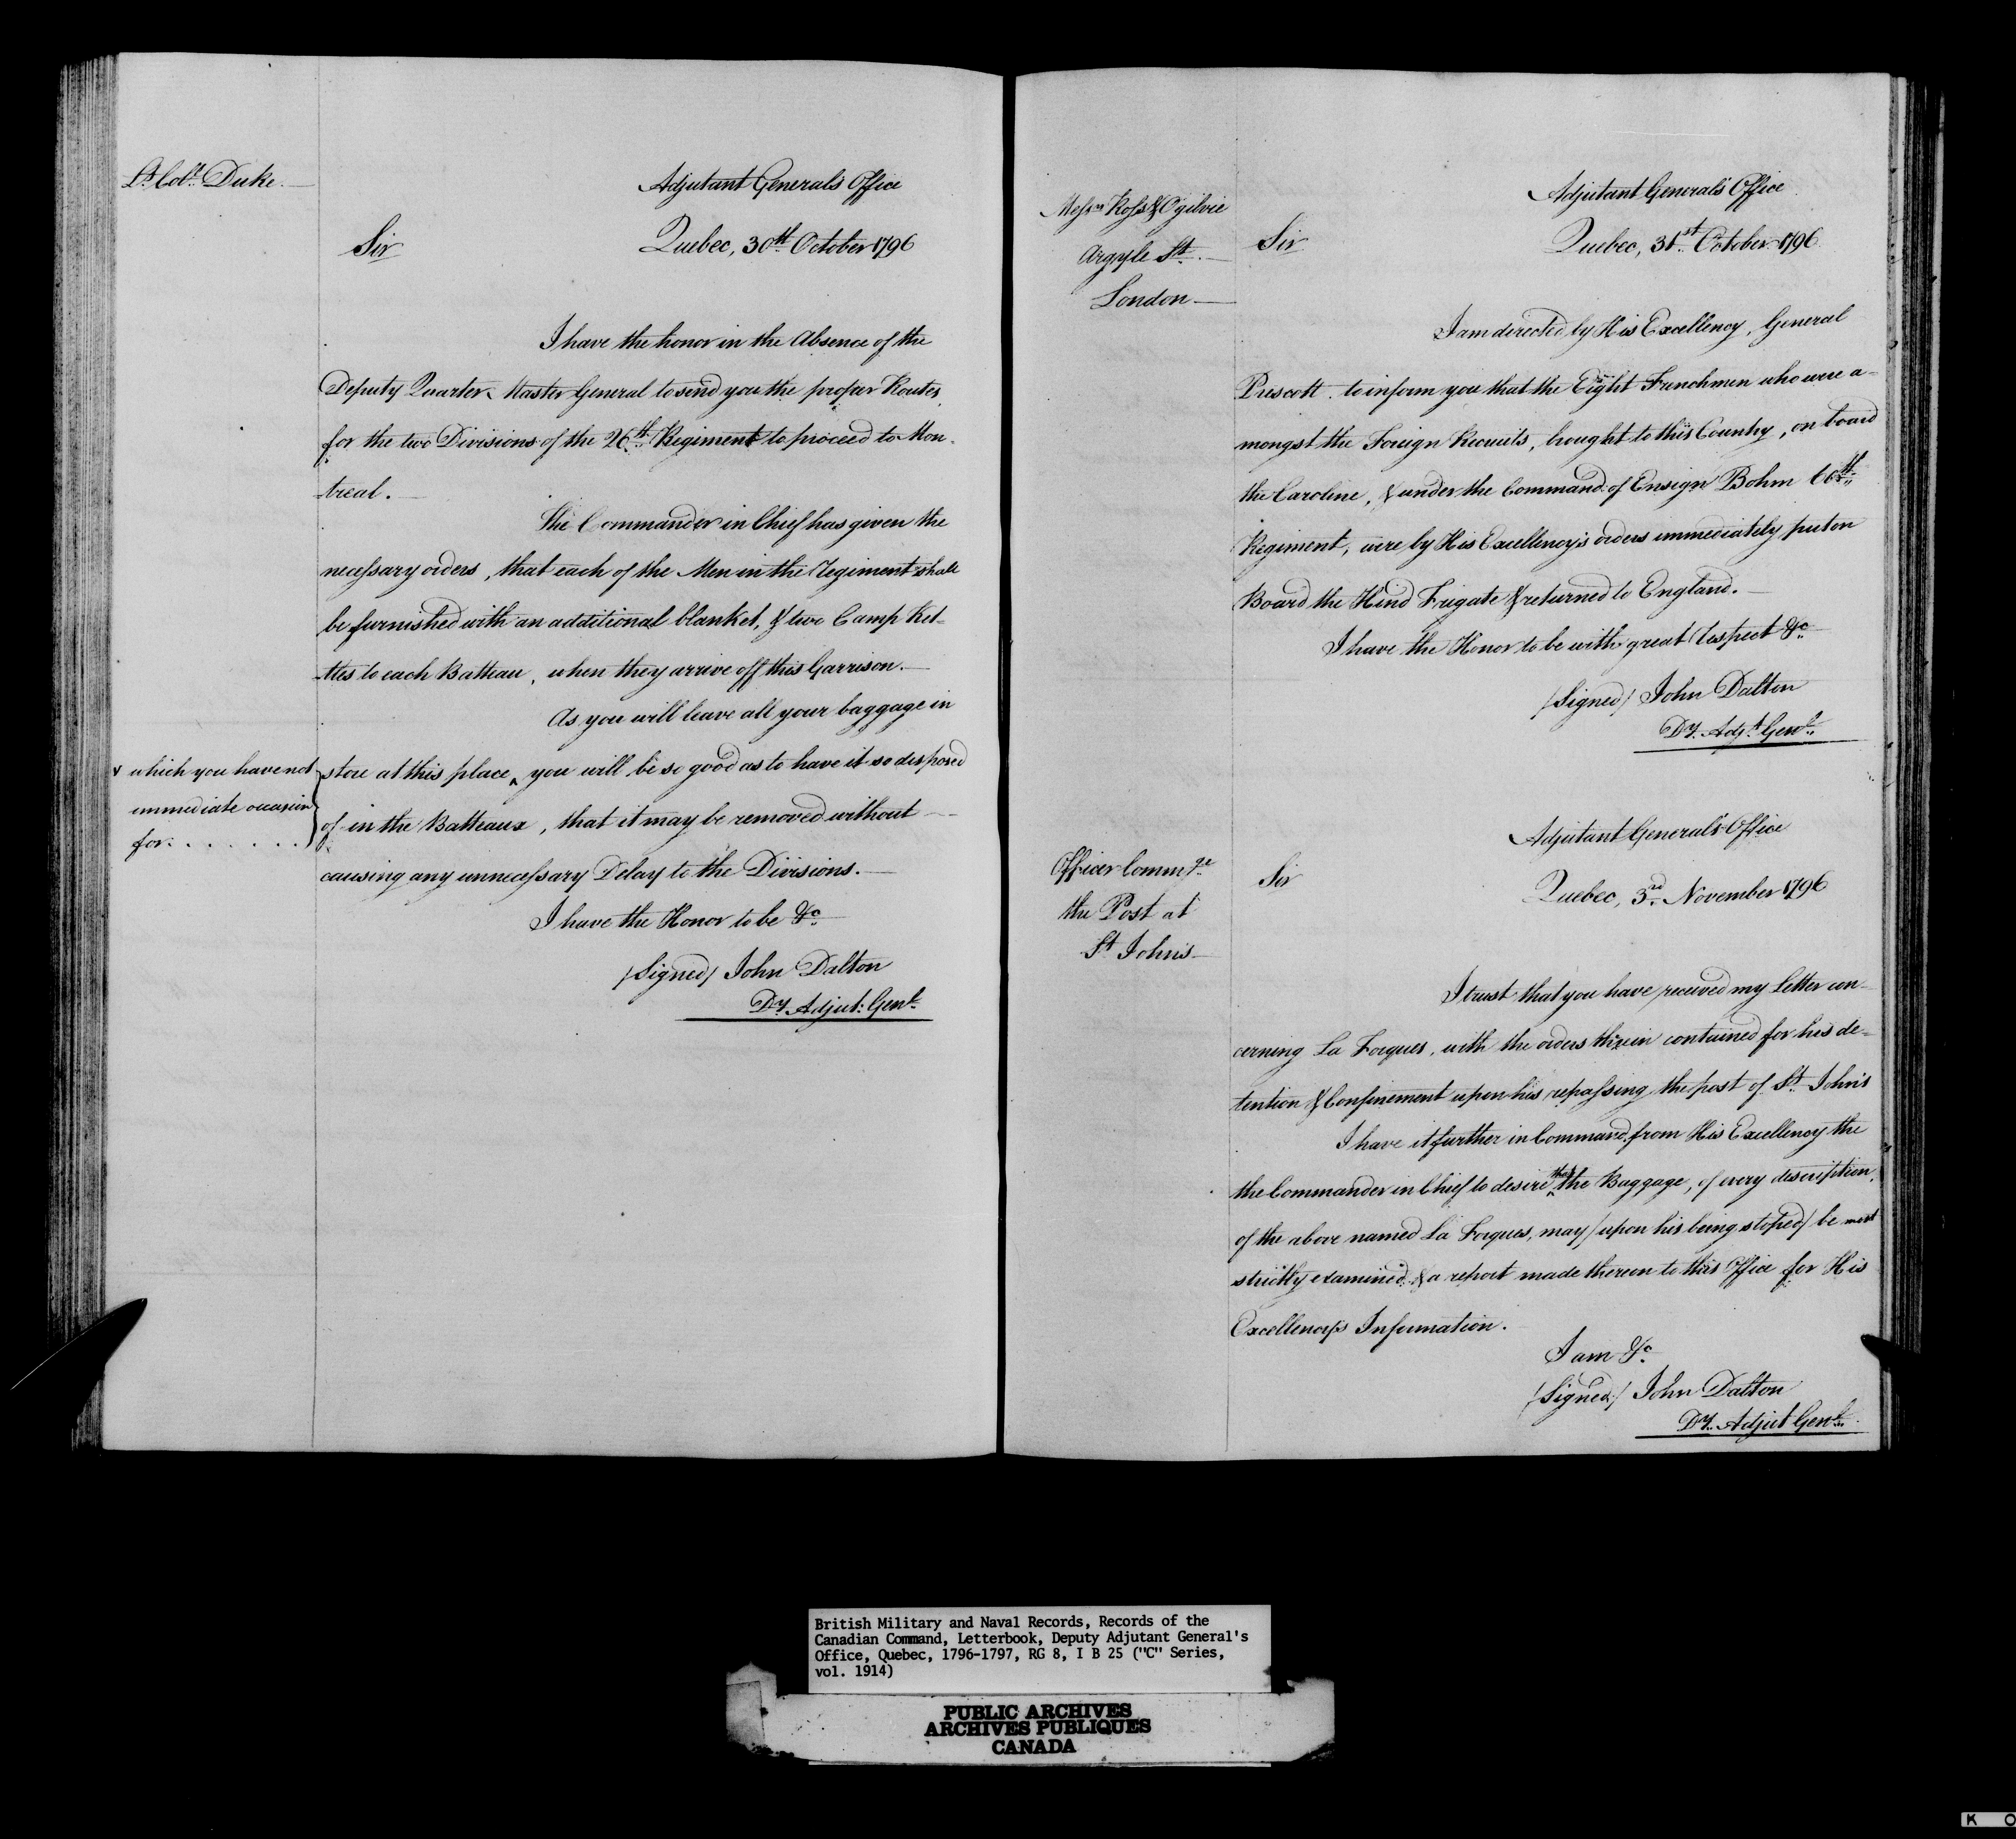 Lt. Colo. Duke.
Adjutant General's Office
Sir
Quebec, 30th. October 1796
I have the honor in the Absence of the
Deputy Quarter Master General to send you the proper Routes
for the two Divisions of the 26th. Regiment to proceed to Mon-
treal.
The Commander in Chief has given the
necessary orders, that each of the Men in the Regiment shall
be furnished with an additional blanket, & two Camp Ket-
ttles to each Batteau, when they arrive off this Garrison.
As you will leave all your baggage in
store at this place ^ you will be so good as to have it so disposed
which you have not
immediate occasion
for. . . . . . .
of in the Batteaux, that it may be removed without
causing any unnecessary Delay to the Divisions.
I have the Honor to be &c
/Signed/ John Dalton
Dy. Adjut: Genl.
Messrs Ross & Ogilvie
Argyle St.
London
Adjutant General's Office
Sir
Quebec, 31st. October 1796
I am directed by His Excellency, General
Prescott. to inform you that the Eight Frenchmen who were a-
mongst the Foreign Recruits, brought to this Country, on board
the Caroline, & under the Command of Ensign Bohm 60th.
Regiment, were by His Excellency's orders immediately put on
Board the Hind Frigate & returned to England.
I have the Honor to be with great Respect &c
/Signed/ John Dalton
Dy. Adjt. Genl.
Officer Commge
the Post at
St Johns
Adjutant General's Office
Sir
Quebec, 3rd. November 1796
I trust that you have received my Letter con-
cerning La Forgues, with the orders therein contained for his de-
tention & Confinement upon his repassing the post of St. John's
I have it further in Command from His Excellency the
the Commander in Chief to desire ^that the Baggage, of every description,
of the above named La Forgues, may / upon his being stoped / be most
strictly examined, & a report made thereon to this Office for His
Excellency's Information.
I am &c
/Signed/ John Dalton
Dy. Adjut Genl.
British Military and Naval Records, Records of the
Canadian Command, Letterbook, Deputy Adjutant General's
Office, Quebec, 1796-1797, RG 8, I B 25 ("C" Series,
vol. 1914)
PUBLIC ARCHIVES
ARCHIVES PUBLIQUES
CANADA
K O